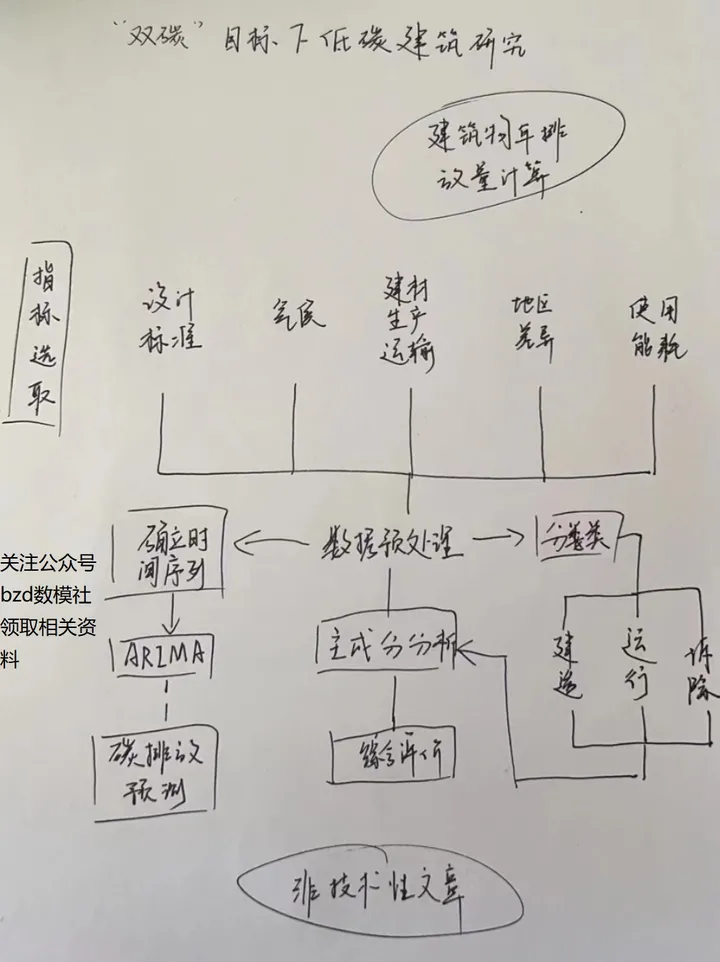 “双碳”目标下低碳建筑研究
建筑物年排
放量计算
指
标
选
取
设计
标准
气候
建材
生产
运输
地区
差异
使用
能耗
确立时
间序列
数据预处理
分类
关注公众号
bzd数模社
领取相关资
料
ARIMA
主成分分析
建
造
运
行
拆
除
碳排放
预测
综合评价
非技术性文章